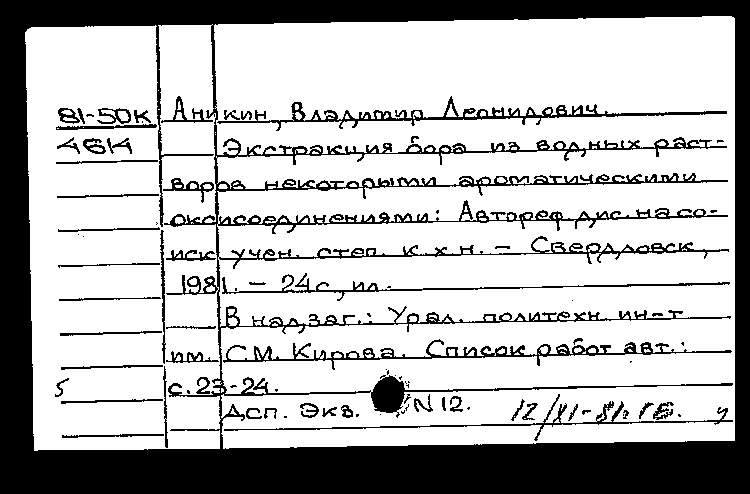 81-50К Аникин, Владимир Леонидович.
4614 Экстракция бора из водных раст-
воров некоторыми ароматическими
оксисоединениями: Автореф.дис.на со-
иск учен. степ. к.х.н. – Свердловск,
1981. – 24с., ил.
В надзаг.: Урал. политехн. ин-т
им. С.М. Кирова. Список работ авт.:
5 с.23-24.
Дсп. Экз. N 12. 12/XI-81.